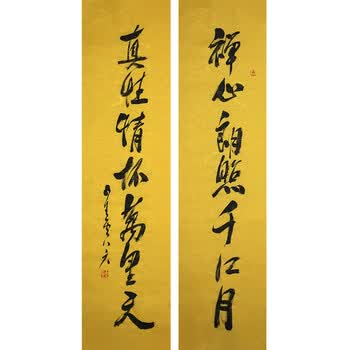 禅心朗照千江月
真性情怀萬里天